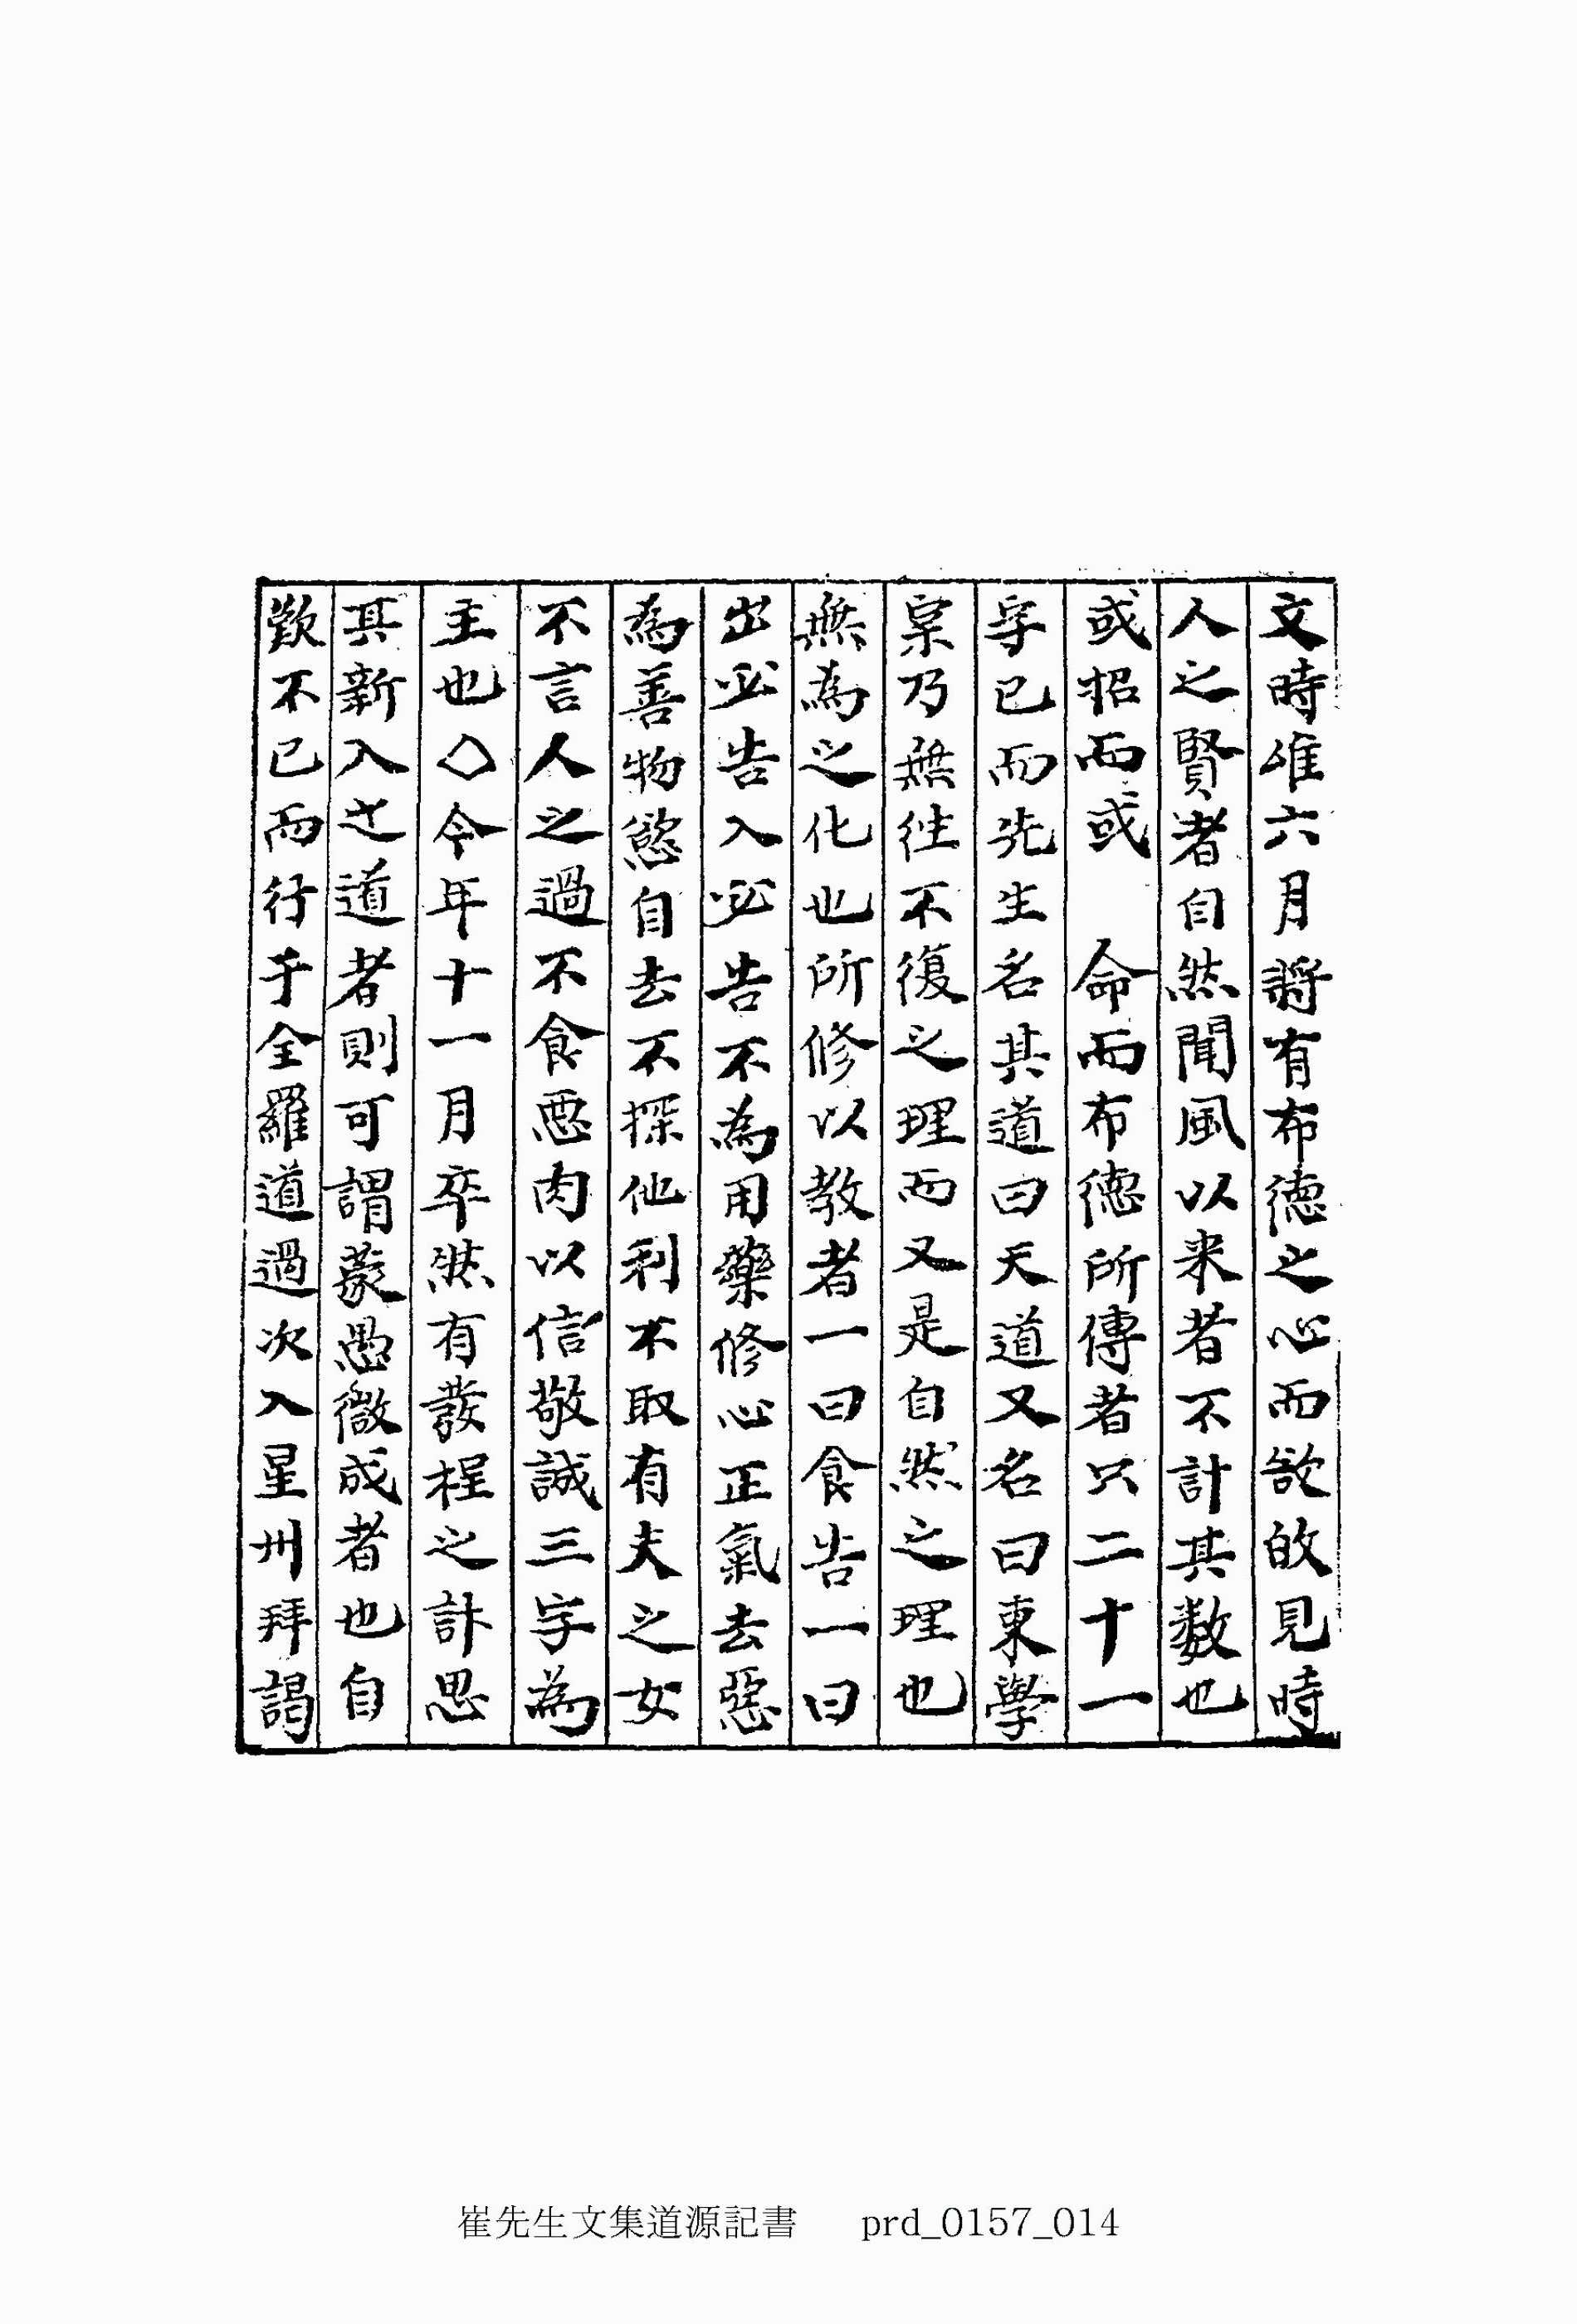 文時唯六月將有布德之心而欲的見時
人之賢者自然聞風以来者不計其數也
或招而或 命而布德所傳者只二十一
字已而先生名其道曰天道又名曰東學
杲乃無徃不復之理而又是自然之理也
無為之化也所修以教者一曰食告一曰
出必告入必告不為用藥修心正氣去惡
為善物慾自去不探他利不取有夫之女
不言人之過不食惡肉以信敬誠三字為
主也◇今年十一月卒然有發程之計思
其新入之道者則可謂蒙愚微成者也自
歎不已而行于全羅道過次入星州拜謁
崔先生文集道源記書 prd_0157_014